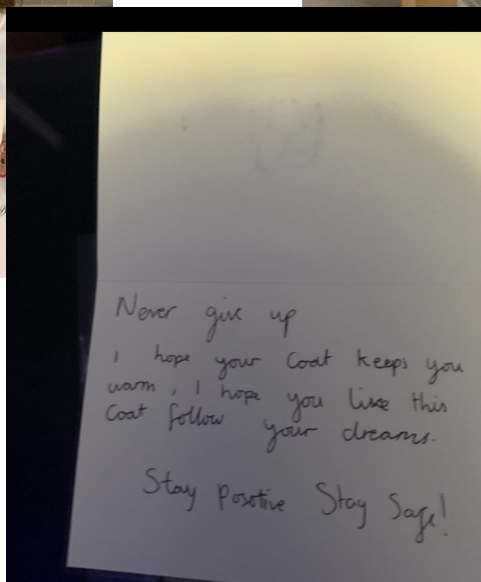 Never give up
I hope your Coat keeps you
warm, I hope you like this
Coat follow your dreams.
Stay Posotive Stay Safe!